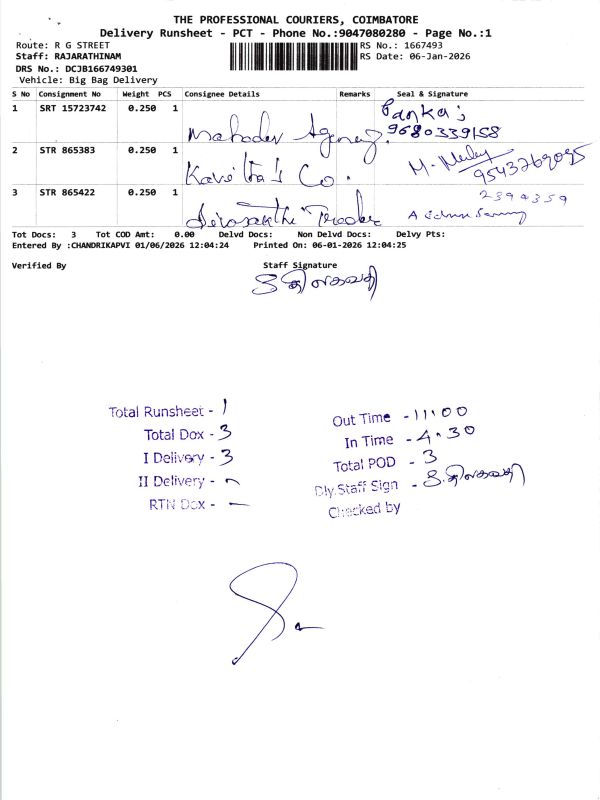 THE PROFESSIONAL COURIERS, COIMBATORE
Delivery Runsheet - PCT - Phone No.:9047080280 - Page No.:1
Route: R G STREET
RS No.: 1667493
Staff: RAJARATHINAM
RS Date: 06-Jan-2026
DRS No.: DCJB166749301
Vehicle: Big Bag Delivery
S No Consignment No Weight PCS Consignee Details Remarks Seal & Signature
1 SRT 15723742 0.250 1 Mahadev Agency. Pankaj
9680339158
2 STR 865383 0.250 1 Kavitha's Co. M.
9543769095
3 STR 865422 0.250 1 Sivasakthi Trader
Tot Docs: 3 Tot COD Amt: 0.00 Delvd Docs: Non Delvd Docs: Delvy Pts:
Entered By :CHANDRIKAPVI 01/06/2026 12:04:24 Printed On: 06-01-2026 12:04:25
Verified By Staff Signature
Total Runsheet - 1
Total Dox - 3
I Delivery - 3
II Delivery -
RTN Dox - —
Out Time - 11:00
In Time - 4.30
Total POD - 3
Dly.Staff Sign -
Checked by